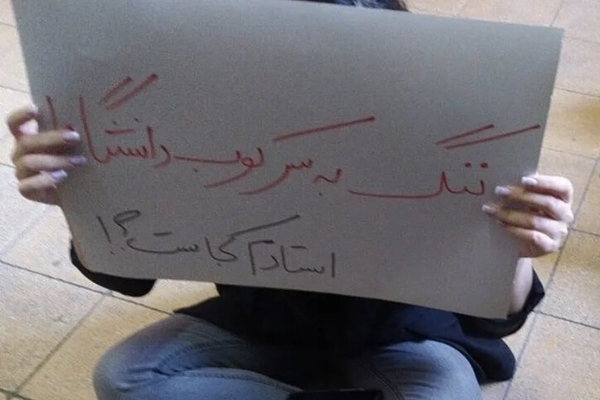 ننگ به سرکوب دانشگاه
استادم کجاست؟!